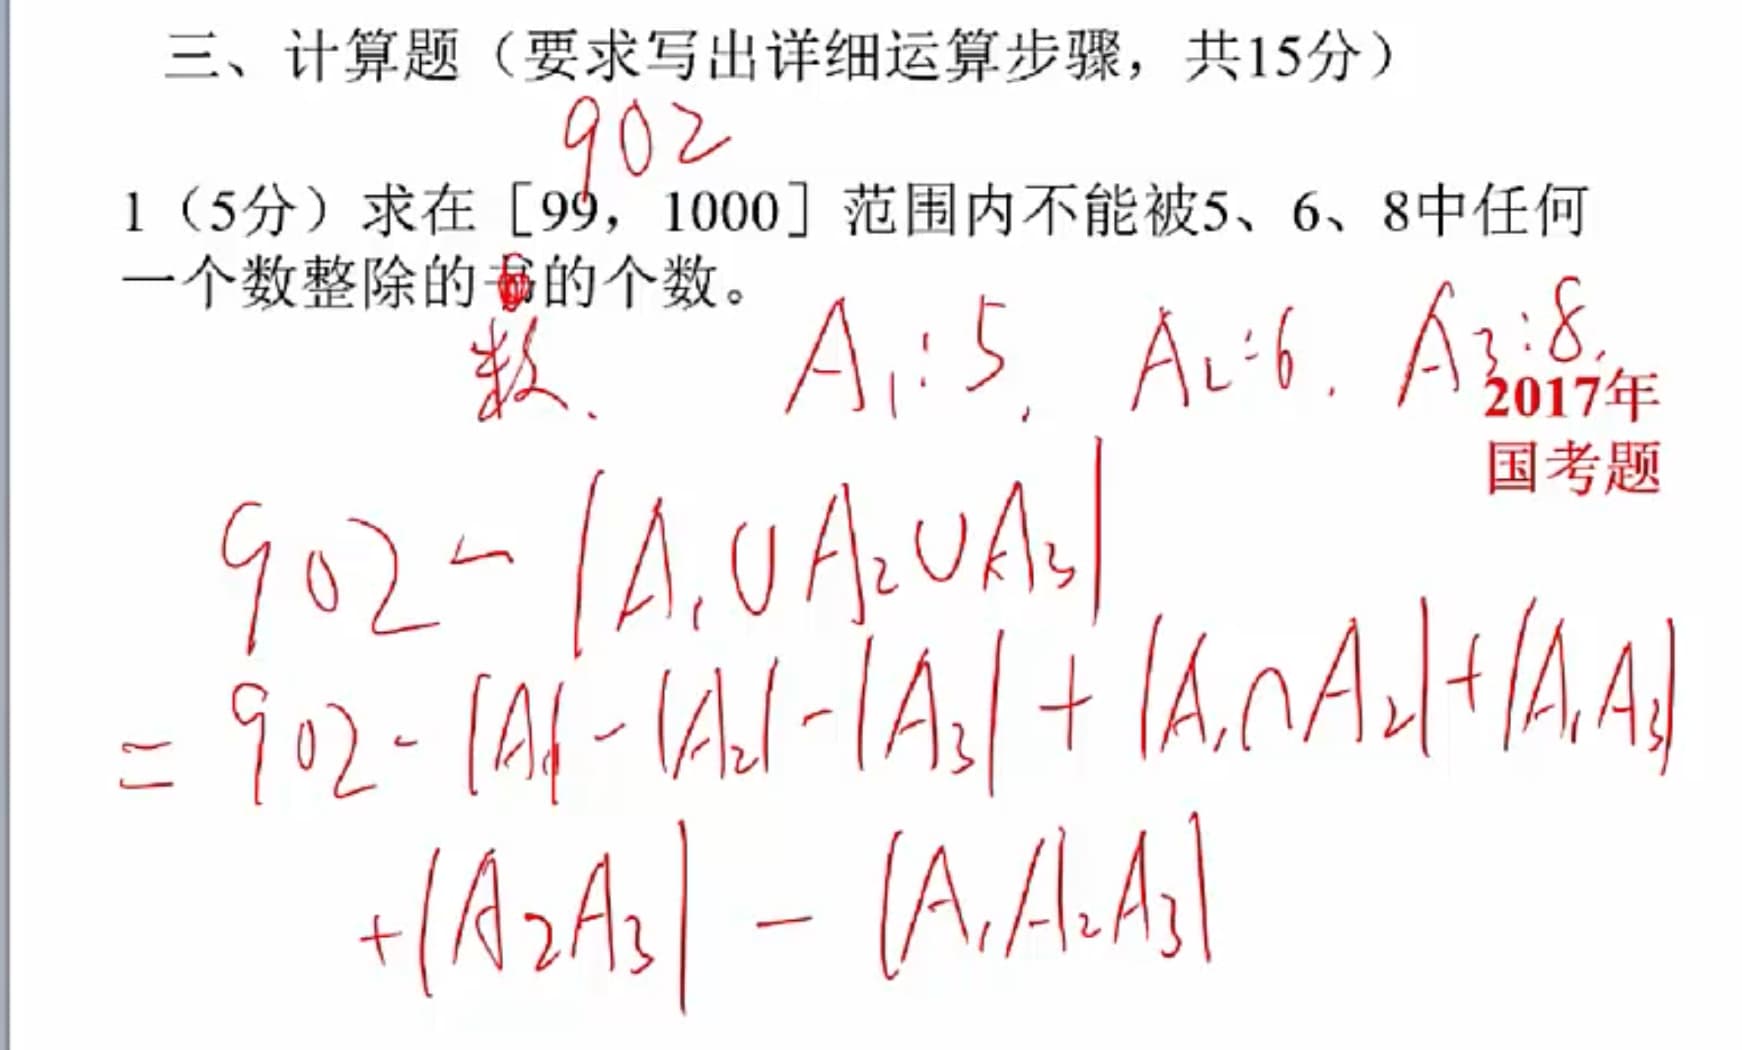 三、计算题（要求写出详细运算步骤，共15分）
902
1（5分）求在［99，1000］范围内不能被5、6、8中任何
一个数整除的的个数。
数. A₁:5, A₂:6, A₃:8.
2017年
国考题
902-|A₁∪A₂∪A₃|
=902-|A₁|-|A₂|-|A₃|+|A₁∩A₂|+|A₁A₃|
+|A₂A₃|-|A₁A₂A₃|